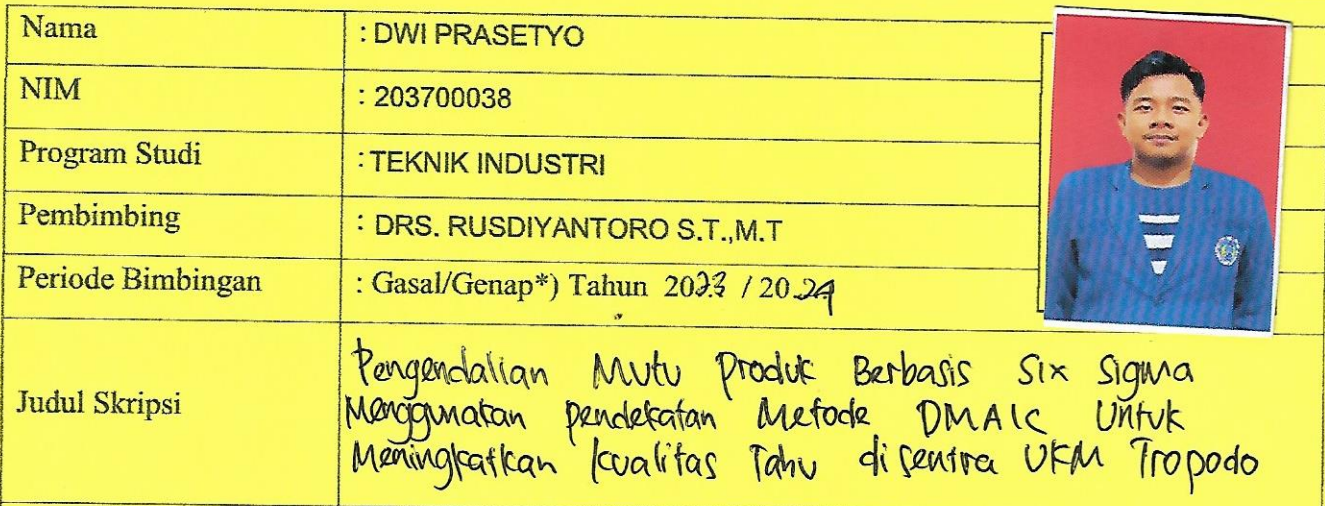 Nama : DWI PRASETYO
NIM : 203700038
Program Studi : TEKNIK INDUSTRI
Pembimbing : DRS. RUSDIYANTORO S.T.,M.T
Periode Bimbingan : Gasal/Genap*) Tahun 2023 / 2024
Judul Skripsi : Pengendalian Mutu Produk Berbasis Six Sigma
Menggunakan pendekatan Metode DMAIC Untuk
Meningkatkan kualitas Tahu di sentra UKM Tropodo